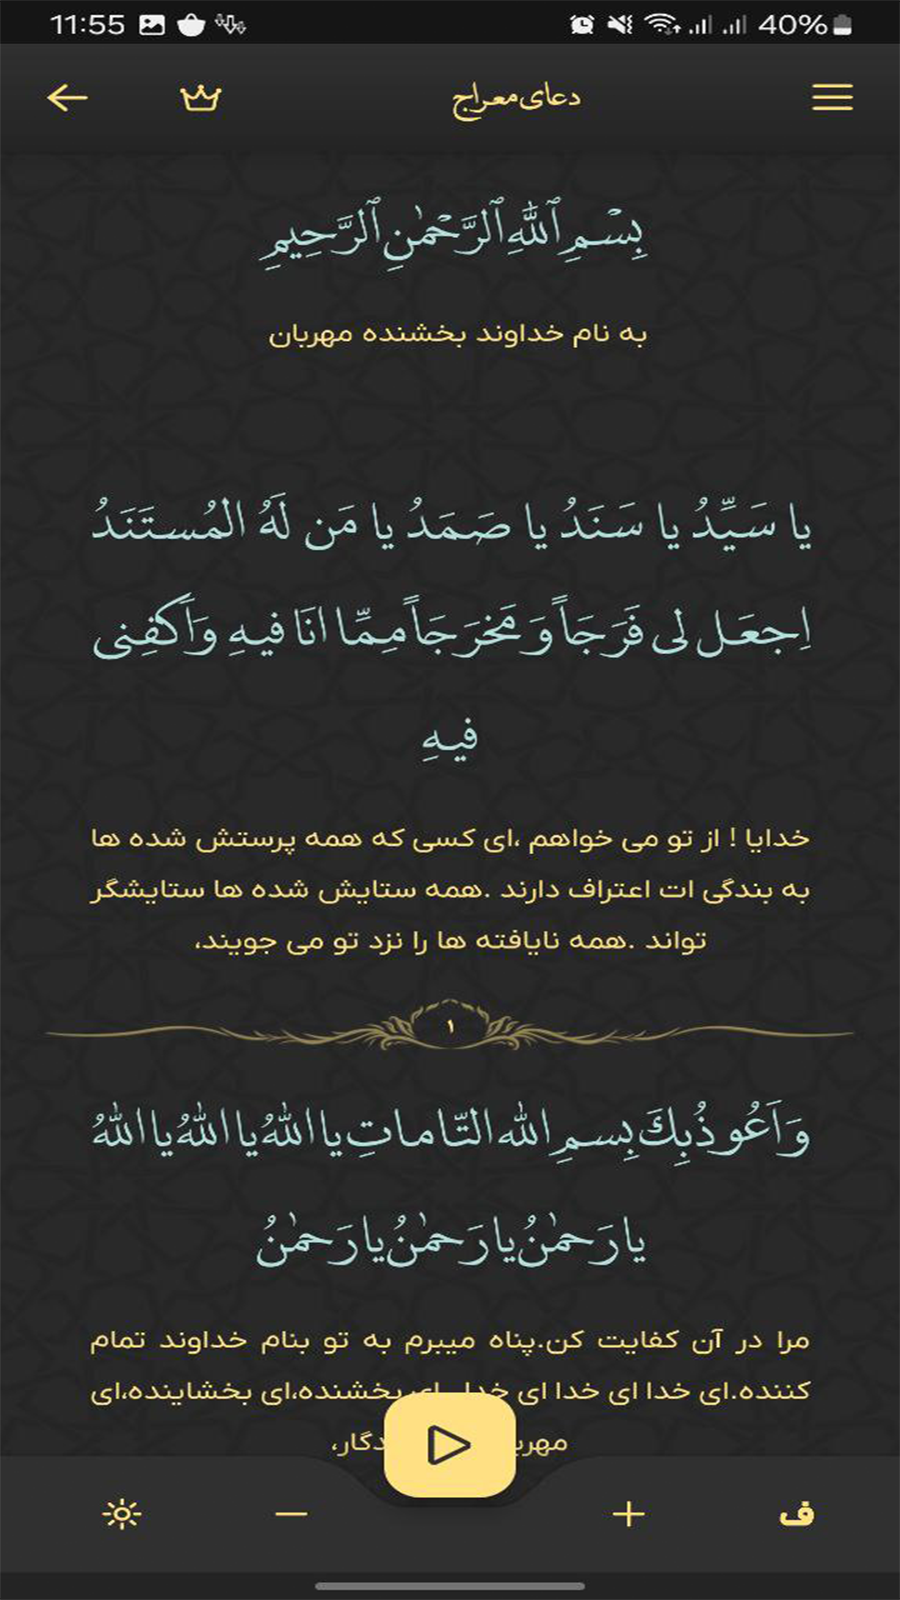 11:55 40%
دعای معراج
بِسْمِ ٱللَّهِ ٱلرَّحْمَٰنِ ٱلرَّحِيمِ
به نام خداوند بخشنده مهربان
یا سَیِّدُ یا سَنَدُ یا صَمَدُ یا مَن لَهُ المُستَنَدُ
اِجعَل لی فَرَجَاً وَ مَخرَجَاً مِمِّا انَا فیهِ وَاَکفِنی
فیهِ
خدایا ! از تو می خواهم ،ای کسی که همه پرستش شده ها
به بندگی ات اعتراف دارند .همه ستایش شده ها ستایشگر
تواند .همه نایافته ها را نزد تو می جویند،
۱
وَاَعُوذُبِكَ بِسمِ الله التّاماتِ یا اللهُ یا اللهُ یا اللهُ
یا رَحمٰنُ یا رَحمٰنُ یا رَحمٰنُ
مرا در آن کفایت کن.پناه میبرم به تو بنام خداوند تمام
کننده.ای خدا ای خدا ای خدا ای بخشنده،ای بخشاینده،ای
ف